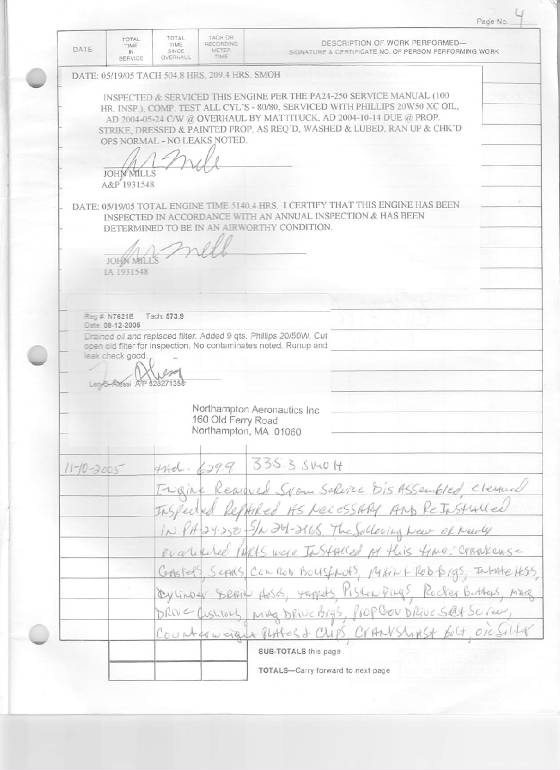 Page No. 4
DATE
TOTAL TIME IN SERVICE
TOTAL TIME SINCE OVERHAUL
TACH OR RECORDING METER TIME
DESCRIPTION OF WORK PERFORMED—
SIGNATURE & CERTIFICATE NO. OF PERSON PERFORMING WORK
DATE: 05/19/05 TACH 504.8 HRS, 209.4 HRS. SMOH
INSPECTED & SERVICED THIS ENGINE PER THE PA24-250 SERVICE MANUAL (100
HR. INSP.). COMP. TEST ALL CYL'S - 80/80, SERVICED WITH PHILLIPS 20W50 XC OIL,
AD 2004-05-24 C/W @ OVERHAUL BY MATTITUCK. AD 2004-10-14 DUE @ PROP.
STRIKE, DRESSED & PAINTED PROP, AS REQ'D, WASHED & LUBED, RAN UP & CHK'D
OPS NORMAL - NO LEAKS NOTED.
JOHN MILLS
A&P 1931548
DATE: 05/19/05 TOTAL ENGINE TIME 5140.4 HRS. I CERTIFY THAT THIS ENGINE HAS BEEN
INSPECTED IN ACCORDANCE WITH AN ANNUAL INSPECTION & HAS BEEN
DETERMINED TO BE IN AN AIRWORTHY CONDITION.
JOHN MILLS
IA 1931548
Reg #: N7621E Tach: 573.9
Date: 08-12-2005
Drained oil and replaced filter. Added 9 qts. Phillips 20/50W. Cut
open old filter for inspection. No contaminates noted. Runup and
leak check good.
A/P
Northampton Aeronautics Inc
160 Old Ferry Road
Northampton, MA 01060
11-10-2005 6299 335.3 SMOH
Engine Removed from Service DisAssembled, cleaned
Inspected Repaired AS Necessary AND ReInstalled
in PA-24-250 S/N 24-2165. The following New or Newly
parts were Installed at this time: Crankcase
Gaskets, Seals, Con Rod Bolts & Nuts, Main & Rod Brgs, Intake Hoses,
Cylinder Drain Hoses, Tappets, Piston Plugs, Rocker Buttons, mag
DRIVE Cushions, mag Drive Brgs, Prop Gov Drive Set Screw,
Counterweight Plates & Clips, Crankshaft Bolt, oil Filter
SUB-TOTALS this page
TOTALS—Carry forward to next page